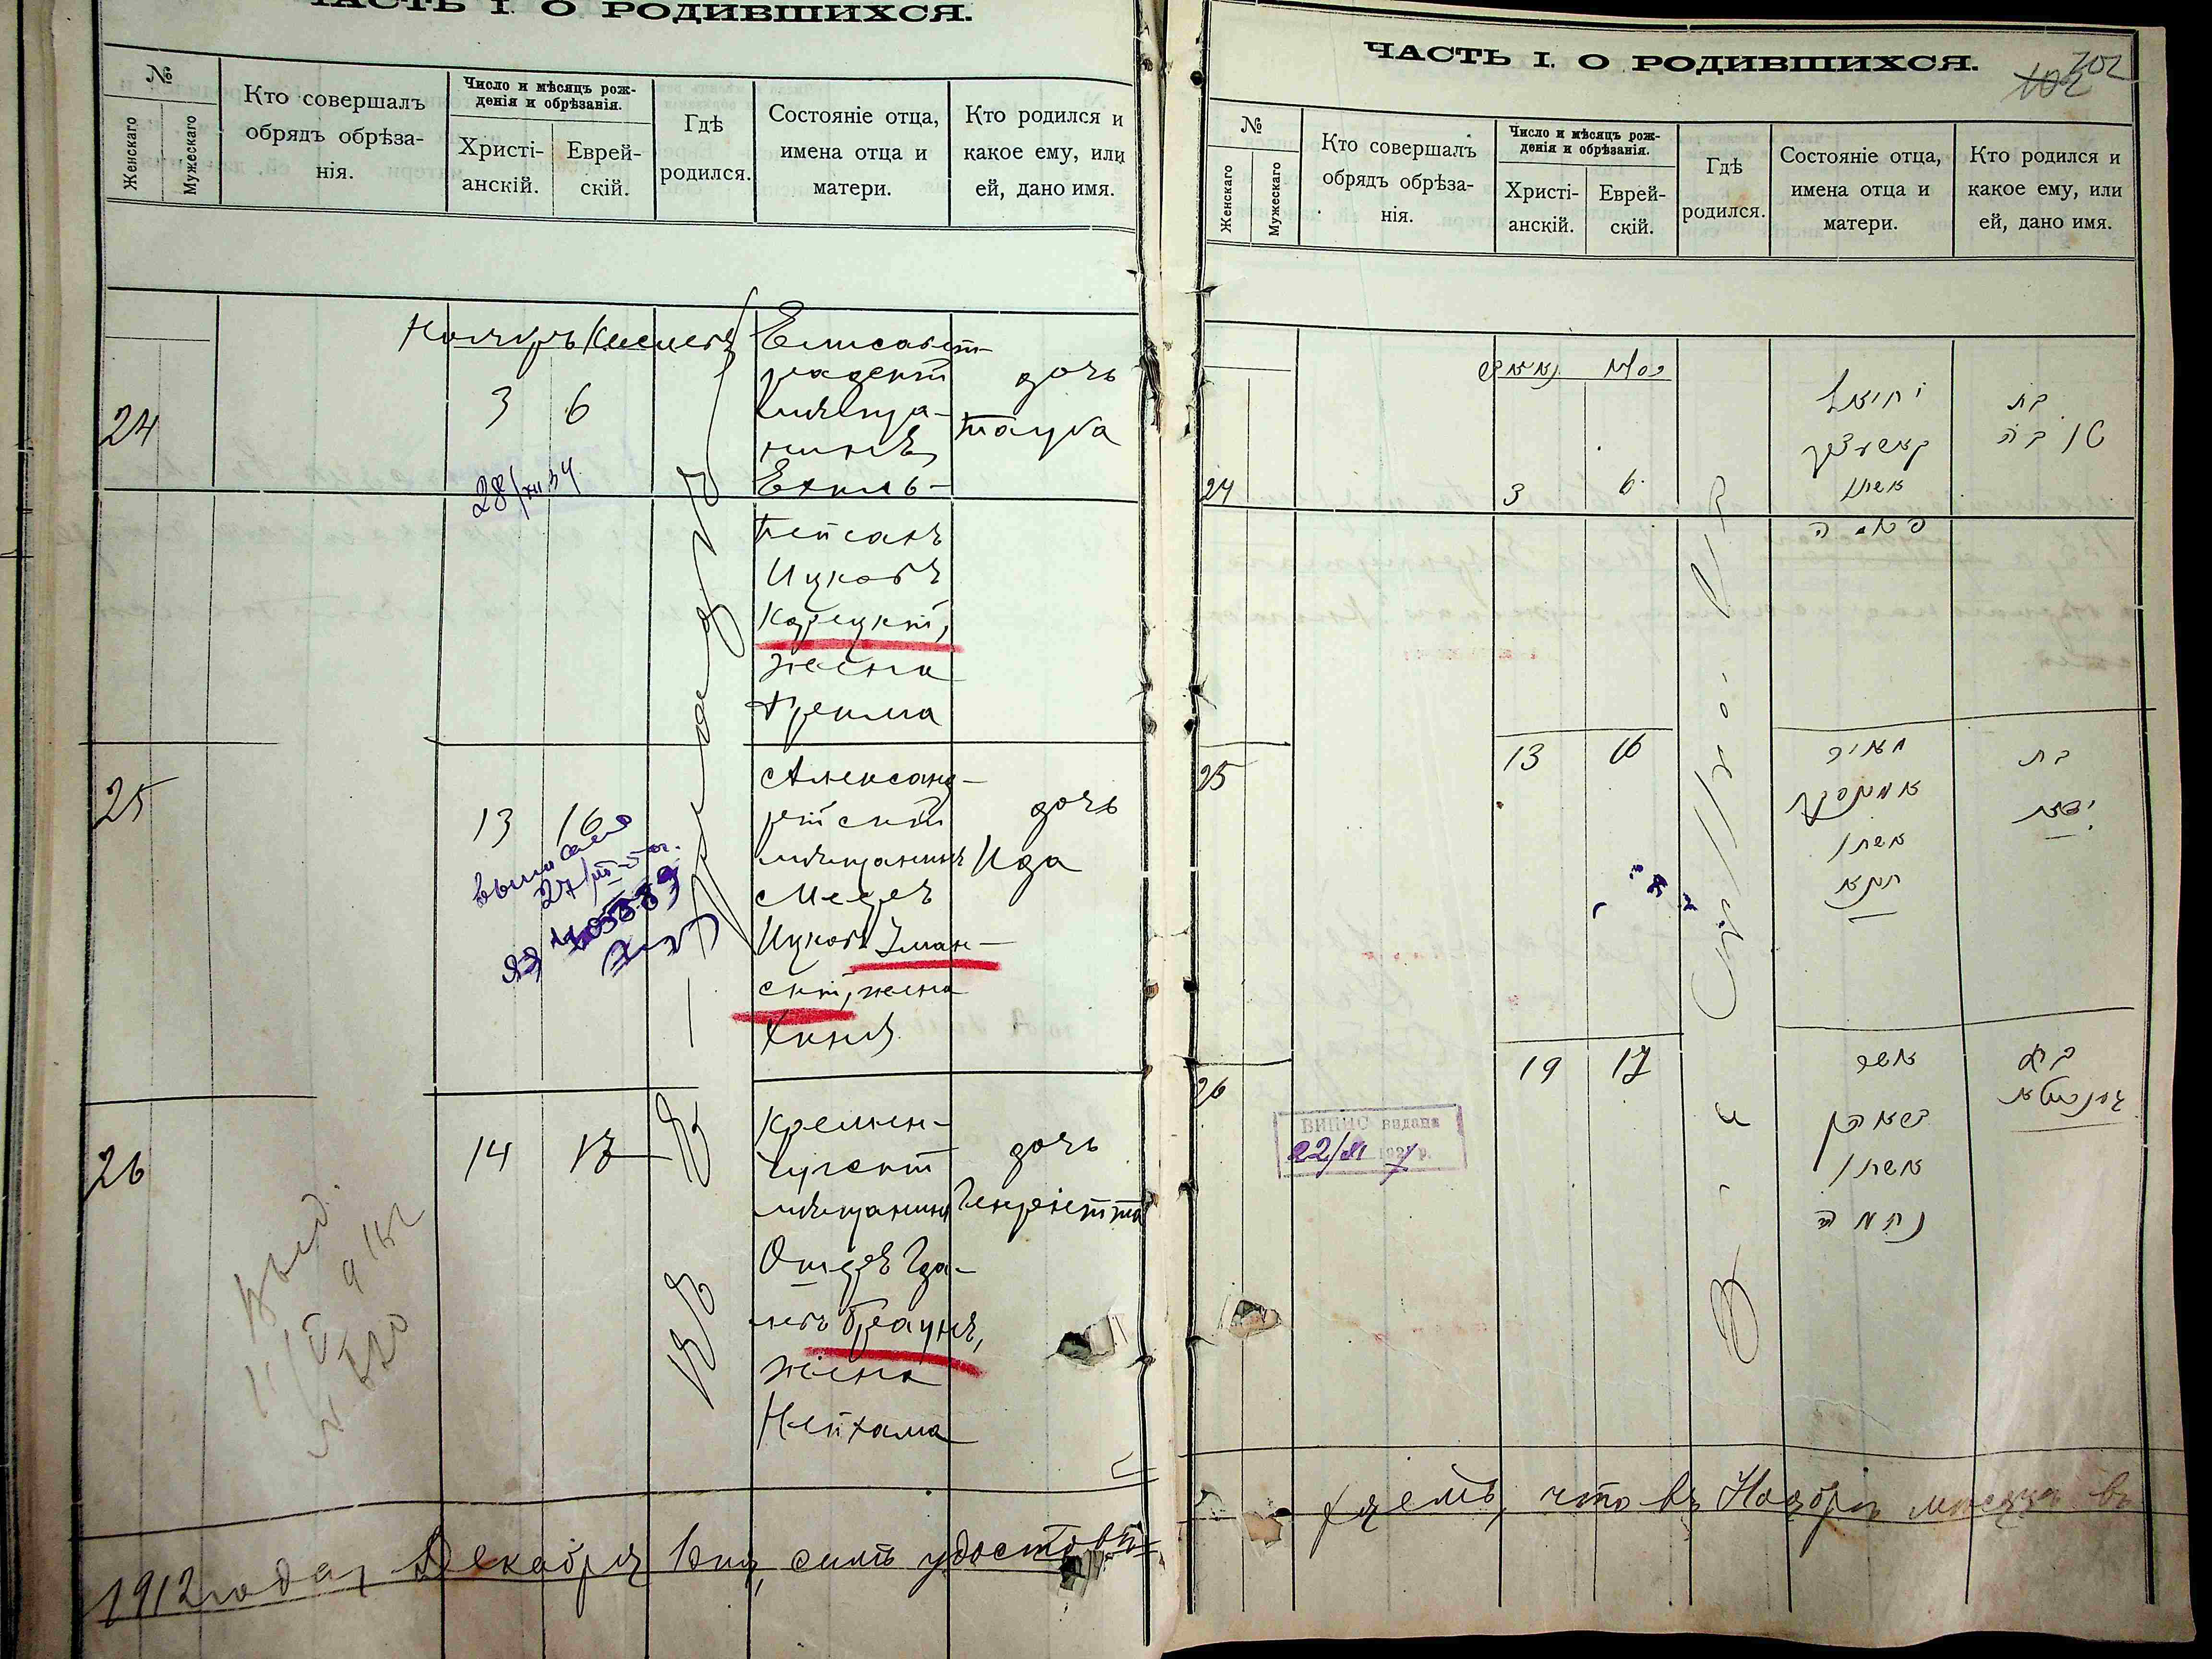 ЧАСТЬ I. О РОДИВШИХСЯ.
№
Женскаго
Мужескаго
Кто совершалъ
обрядъ обрѣза-
нія.
Число и мѣсяцъ рож-
денія и обрѣзанія.
Христі-
анскій.
Еврей-
скій.
Гдѣ
родился.
Состояніе отца,
имена отца и
матери.
Кто родился и
какое ему, или
ей, дано имя.
Ноябрь Кислевъ
24
3
6
28/XII 34
Елисавет-
градскій
мѣща-
нинъ
Ехиль-
Бейсахъ
Ицковъ
Корецкій,
жена
Фрейма
дочь
Тауба
25
13
16
выписано
Александ-
рійскій
мѣщанинъ
Мееръ
Ицковъ Уман-
скій, жена
Хиня
дочь
Ида
26
14
17
Кремен-
чугскій
мѣщанинъ
Ошеръ Гда-
левъ Браунъ,
жена
Нехама
дочь
Генріетта
Выд.
1912 года, Декабря 1 дня, симъ удостовѣ-
ЧАСТЬ I. О РОДИВШИХСЯ.
102
202
№
Женскаго
Мужескаго
Кто совершалъ
обрядъ обрѣза-
нія.
Число и мѣсяцъ рож-
денія и обрѣзанія.
Христі-
анскій.
Еврей-
скій.
Гдѣ
родился.
Состояніе отца,
имена отца и
матери.
Кто родился и
какое ему, или
ей, дано имя.
כסלו
24
3
6
יחיאל
אשתו
בת
טובה
25
13
16
מאיר
אומנסקי
אשתו
חנא
בת
26
19
17
ВИПИС видана
22/XI 1927 р.
אשר
בראון
אשתו
נחמה
בת
ряемъ, что въ Ноябрѣ мѣсяцѣ въ